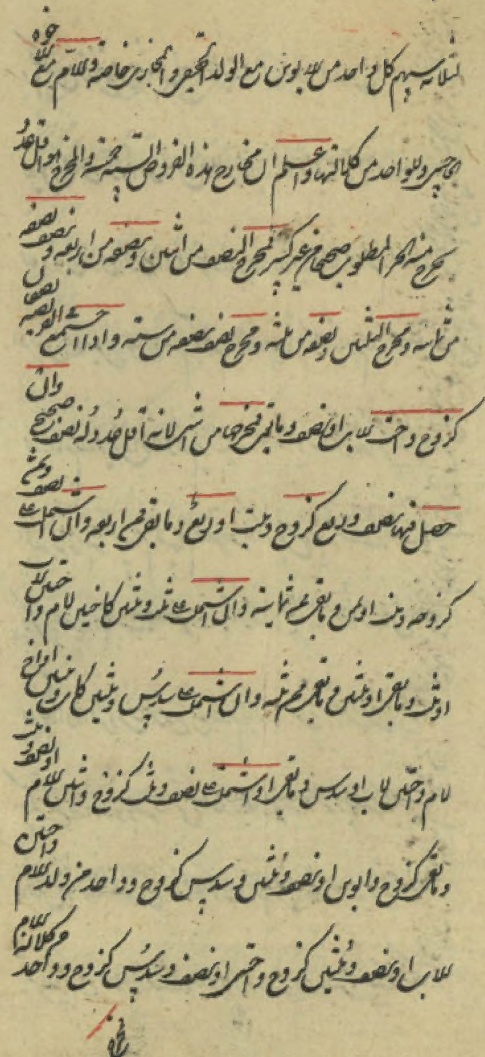 ثلاثة سهم كل واحد من الابوين مع الولد الحقيقي والمجازي خاصة وللام مع اخوة
اي حيين وللواحد من كلالتها واعلم ان مخارج هذه الفروض الستة خمسة والمخرج هو اقل عدد
يخرج منه الجزء المطلوب صحيحا من غير كسر فمخرج النصف من اثنين ونصفه من اربعة ونصف نصفه
من ثمانية ومخرج الثلثين ونصفه من ثلثة ومخرج نصف نصفه من ستة واذا اجتمع في الفريضة نصفان
كزوج واخت لاب او نصف وما بقي فمخرجها من اثنين لانه اقل عدد له نصف صحيح وان
حصل فيها نصف وربع كزوج وبنت او ربع وما بقي فمن اربعة وان اشتملت على نصف وثمن
كزوجة وبنت او ثمن وما بقي فمن ثمانية وان اشتملت على ثلث وثلثين كاخين لام واختين لاب
او ثلث وما بقي او ثلثين وما بقي فمن ثلثة وان اشتملت على سدس وثلثين كام وبنتين او اخ
لام واختين لاب او سدس وما بقي او اشتملت على نصف وثلث كزوج واثنين للام او نصف وثلث
وما بقي كزوج وابوين او نصف وثلثين وسدس كزوج وواحد من ولد الام واختين
للاب او نصف وثلثين كزوج واختين او نصف وسدس كزوج وواحد من كلالة الام